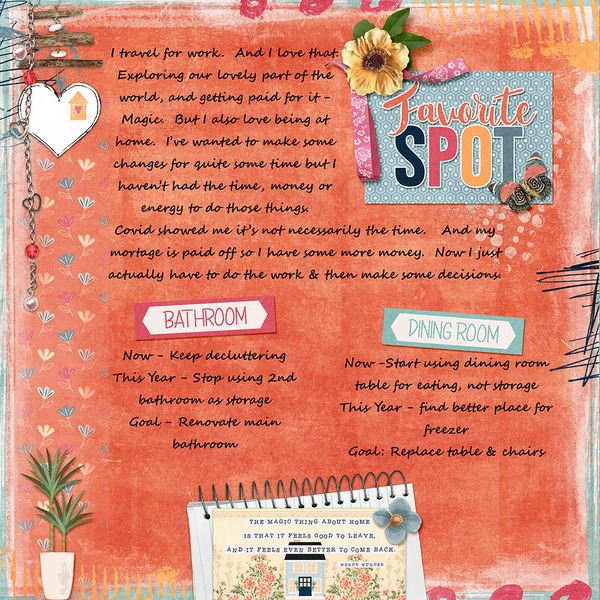 I travel for work. And I love that.
Exploring our lovely part of the
world, and getting paid for it -
Magic. But I also love being at
home. I've wanted to make some
changes for quite some time but I
haven't had the time, money or
energy to do those things.
Covid showed me it's not necessarily the time. And my
mortage is paid off so I have some more money. Now I just
actually have to do the work & then make some decisions.
Favorite
SPOT
BATHROOM
Now - Keep decluttering
This Year - Stop using 2nd
bathroom as storage
Goal - Renovate main
bathroom
DINING ROOM
Now -Start using dining room
table for eating, not storage
This Year - find better place for
freezer
Goal: Replace table & chairs
THE MAGIC THING ABOUT HOME
IS THAT IT FEELS GOOD TO LEAVE,
AND IT FEELS EVEN BETTER TO COME BACK.
WENDY WUNDER